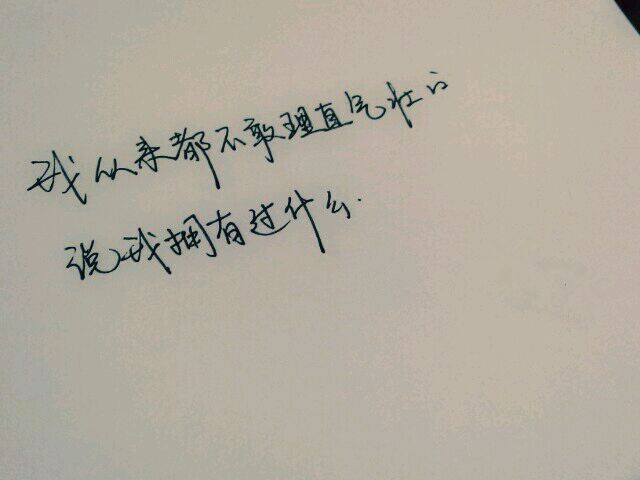 我从来都不敢理直气壮的
说我拥有过什么.